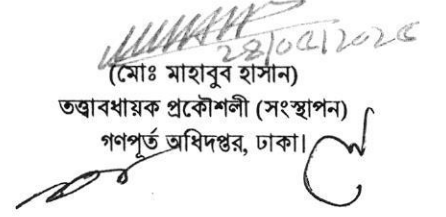 (মোঃ মাহাবুব হাসান)
তত্ত্বাবধায়ক প্রকৌশলী (সংস্থাপন)
গণপূর্ত অধিদপ্তর, ঢাকা।